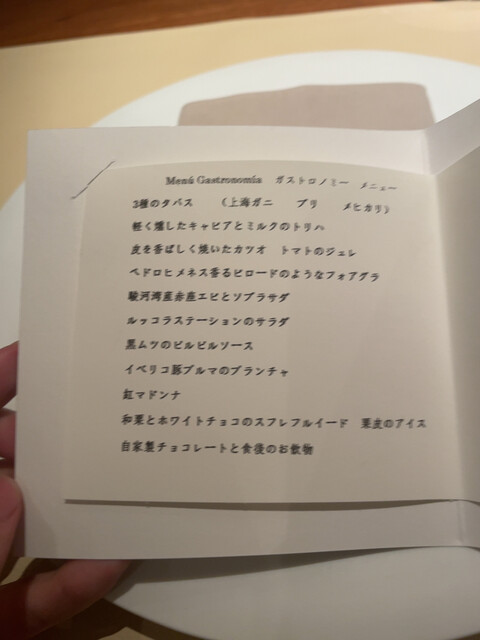 Menú Gastronomía ガストロノミー メニュー
3種のタパス （上海ガニ ブリ メヒカリ）
軽く燻したキャビアとミルクのトリハ
皮を香ばしく焼いたカツオ トマトのジュレ
ペドロヒメネス香るビロードのようなフォアグラ
駿河湾産赤座エビとソブラサダ
ルッコラステーションのサラダ
黒ムツのピルピルソース
イベリコ豚プルマのプランチャ
紅マドンナ
和栗とホワイトチョコのスフレフルイード 栗皮のアイス
自家製チョコレートと食後のお飲物